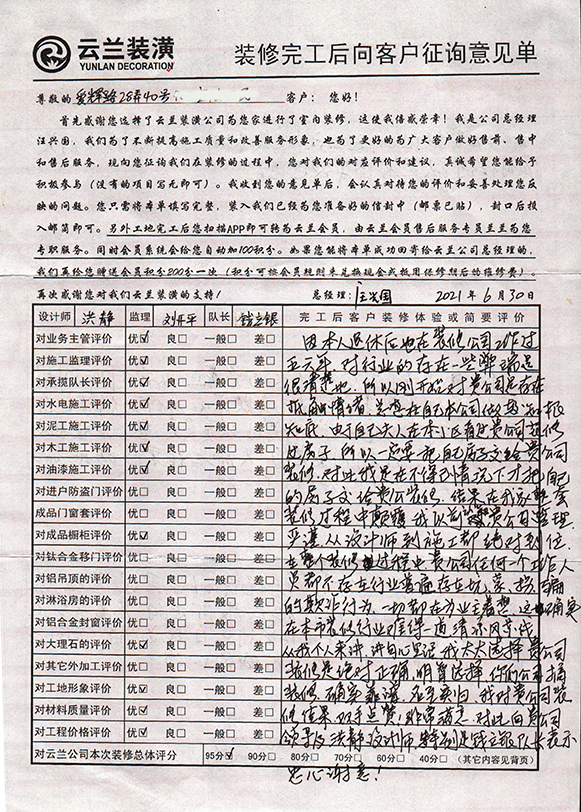 云兰装潢
YUNLAN DECORATION
装修完工后向客户征询意见单
尊敬的 爱辉路28弄40号 客户： 您好！
首先感谢您选择了云兰装潢公司为您家进行了室内装修，这使我倍感荣幸！我是公司总经理
汪兴国，我们为了不断提高施工质量和改善服务形象，也为了更好的为广大客户做好售前、售中
和售后服务，现向您征询我们在装修的过程中，您对我们的对应评价和建议，真诚希望您能给予
积极参与（没有的项目写无即可）。我收到您的意见单后，会认真对待您的评价和妥善处理您反
映的问题。您只需将本单填写完整，装入我们已经为您准备好的信封中（邮票已贴），封口后投
入邮筒即可。另外工地完工后您扫描APP即可转为云兰会员，由云兰会员售后服务专员兰兰为您
专职服务。同时会员系统会给您自动加100积分。如果您能将本单成功回寄给云兰公司总经理的，
我们再给您赠送会员积分200分一次（积分可按会员规则来兑换现金或抵用保修期后的维修费）。
再次感谢您对我们云兰装潢的支持！ 总经理：汪兴国 2021年6月30日
设计师 洪静 监理 刘开平 队长 钱立银 完工后客户装修体验或简要评价
对业务主管评价 优☑ 良□ 一般□ 差□
对施工监理评价 优☑ 良□ 一般□ 差□
对承揽队长评价 优☑ 良□ 一般□ 差□
对水电施工评价 优☑ 良□ 一般□ 差□
对泥工施工评价 优☑ 良□ 一般□ 差□
对木工施工评价 优☑ 良□ 一般□ 差□
对油漆施工评价 优☑ 良□ 一般□ 差□
对进户防盗门评价 优□ 良□ 一般□ 差□
成品门窗套评价 优□ 良□ 一般□ 差□
对成品橱柜评价 优☑ 良□ 一般□ 差□
对钛合金移门评价 优□ 良□ 一般□ 差□
对铝吊顶的评价 优□ 良□ 一般□ 差□
对淋浴房的评价 优□ 良□ 一般□ 差□
对铝合金封窗评价 优□ 良□ 一般□ 差□
对大理石的评价 优☑ 良□ 一般□ 差□
对其它外加工评价 优□ 良□ 一般□ 差□
对工地形象评价 优☑ 良□ 一般□ 差□
对材料质量评价 优☑ 良□ 一般□ 差□
对工程价格评价 优☑ 良□ 一般□ 差□
对云兰公司本次装修总体评分 95分☑ 90分□ 80分□ 70分□ 60分□ 40分□ （其它内容见背页）
由本人退休后也在装修公司工作过
五六年，对行业的存在一些弊端是
很清楚地，所以刚开始对贵公司也存在
抵触情绪，总想在自己本公司做因知根
知底，由于自己夫人在本小区看过贵公司装修
过房子，所以一定要把自己房子交给贵公司
装修，对此我是在不得已情况下才把自己
的房子交给贵公司装修，结果在我家整套
装修过程中颠覆我以前对贵公司管理
严谨，从设计师到施工都绝对到位，
在整个装修过程中贵公司任何一个工作人
员都不存在行业普遍存在坑、蒙、拐、骗
的欺诈行为，一切都在为业主着想，这确实
在本市装修行业难得一道清亮风景线，
从我个人来讲，讲自心里话，我太太选择贵公司
装修是绝对正确，明智选择，你们公司搞
装修，确实靠谱，
修结果双手点赞，非常满意，对此向贵公司
领导及洪静设计师，特别是钱立银队长表示
忠心谢意！